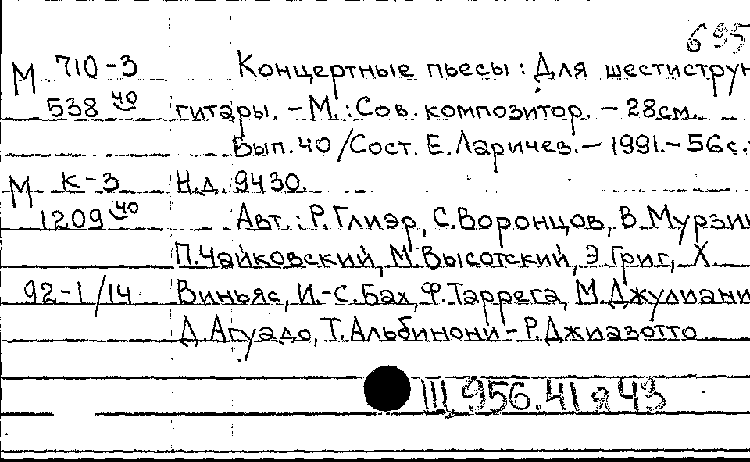 695
М 710-3 Концертные пьесы : Для шестистру
538 40 гитары. - М. : Сов. композитор. - 28см.
Вып. 40 / Сост. Е. Ларичев. - 1991. - 56с.
М К-3 Н.д. 9430.
1209 40 Авт. : Р. Глиэр, С. Воронцов, В. Мурзин
П. Чайковский, М. Высотский, Э. Григ, Х.
92-1/14 Виньяс, И.-С. Бах, Ф. Таррега, М. Джулиани
Д. Агуадо, Т. Альбинони - Р. Джиазотто
Щ 956.41 я 43